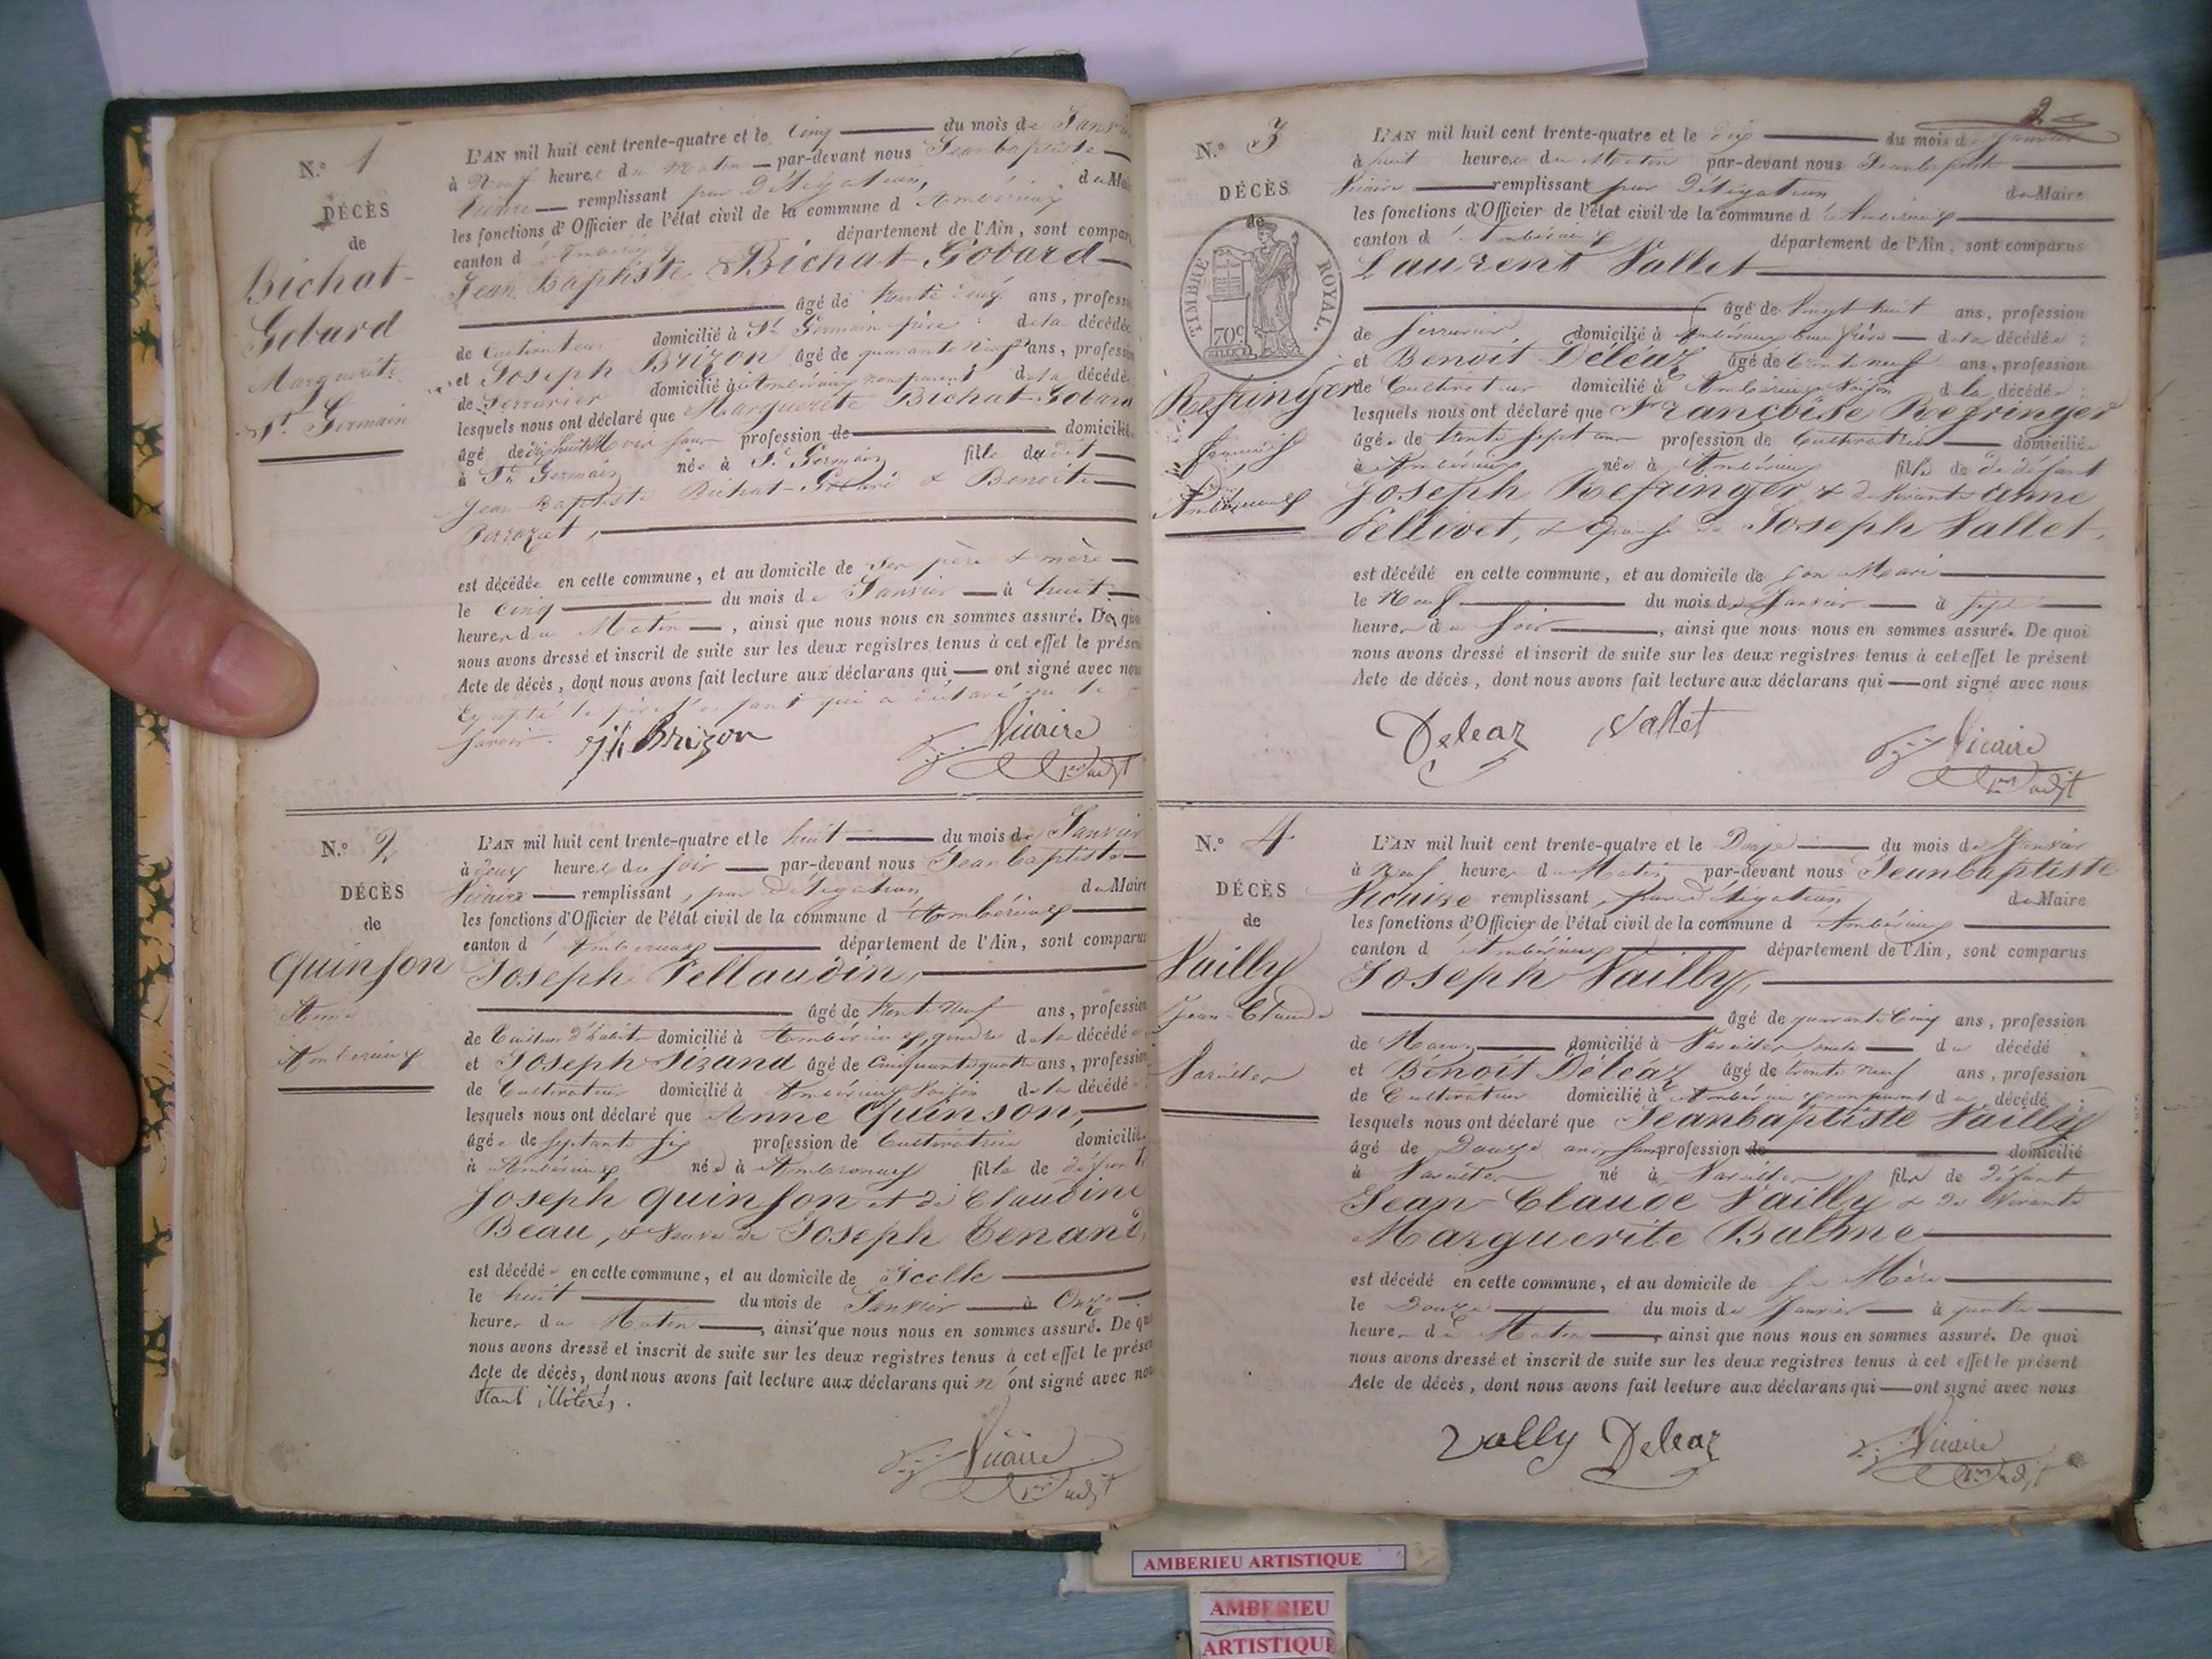 N.° 1
DÉCÈS
de
Bichat-
Gobard
Marguerite
St. Germain
L'AN mil huit cent trente-quatre et le Cinq du mois de Janvier
à Neuf heures du Matin par-devant nous Jeanbaptiste
Vicaire remplissant par délégation, du Maire
les fonctions d'Officier de l'état civil de la commune d'Ambérieux
canton d'Ambérieux département de l'Ain, sont comparus
Jean Baptiste Bichat-Gobard
âgé de trente deux ans, profession
de Cultivateur domicilié à St Germain père de la décédée
et Joseph Brizon âgé de quarante neuf ans, profession
de Serrurier domicilié à Ambérieux non parent de la décédée
lesquels nous ont déclaré que Marguerite Bichat-Gobard
âgé de dix huit Mois sans profession de domicilié
à St Germain née à St Germain fille dudit
Jean-Baptiste Bichat-Gobard & Benoite
Perrozet,
est décédée en cette commune, et au domicile de ses père & mère
le Cinq du mois de Janvier à huit
heures du Matin, ainsi que nous nous en sommes assuré. De quoi
nous avons dressé et inscrit de suite sur les deux registres tenus à cet effet le présent
Acte de décès, dont nous avons fait lecture aux déclarans qui ont signé avec nous
Excepté le père l'enfant qui a déclaré ne le
savoir. Jh Brizon Vicaire
N.° 2
DÉCÈS
de
Quinson
Anne
Amberieux
L'AN mil huit cent trente-quatre et le huit du mois de Janvier
à deux heures du soir par-devant nous Jeanbaptiste
Vicaire remplissant, par Délégation du Maire
les fonctions d'Officier de l'état civil de la commune d'Ambérieux
canton d'Ambérieux département de l'Ain, sont comparus
Joseph Vellaudin,
âgé de trente neuf ans, profession
de Tailleur d'habits domicilié à Ambérieux, gendre de la décédée
et Joseph Sizand âgé de cinquante quatre ans, profession
de Cultivateur domicilié à Ambérieux Voisin de la décédée
lesquels nous ont déclaré que Anne Quinson,
âgée de septante six profession de Cultivatrice domiciliée
à Ambérieux née à Ambronay fille de défunt
Joseph Quinson et de Claudine
Beau, & Veuve de Joseph Tenand,
est décédée en cette commune, et au domicile de Icelle
le huit du mois de Janvier à Onze
heures du Matin, ainsi que nous nous en sommes assuré. De quoi
nous avons dressé et inscrit de suite sur les deux registres tenus à cet effet le présent
Acte de décès, dont nous avons fait lecture aux déclarans qui n'ont signé avec nous
étant illitérés.
Vicaire
2
N.° 3
DÉCÈS
de
TIMBRE ROYAL.
70c
Refringer
Françoise
Ambérieux
L'AN mil huit cent trente-quatre et le dix du mois de Janvier
à huit heures du Matin par-devant nous Jeanbaptiste
Vicaire remplissant par Délégation du Maire
les fonctions d'Officier de l'état civil de la commune d'Ambérieux
canton d'Ambérieux département de l'Ain, sont comparus
Laurent Vallet
âgé de Vingt huit ans, profession
de Serrurier domicilié à Ambérieux beau frère de la décédée;
et Benoit Déléaz âgé de trente neuf ans, profession
de Cultivateur domicilié à Ambérieux Voisin d la décédée;
lesquels nous ont déclaré que Françoise Refringer
âgée de trente sept ans profession de Cultivatrice domiciliée
à Ambérieux née à Ambérieux fille de défunt
Joseph Refringer & de vivante anne
Vellivet, & Epouse de Joseph Vallet,
est décédé en cette commune, et au domicile de son Mari
le Neuf du mois de Janvier à sept
heures du soir, ainsi que nous nous en sommes assuré. De quoi
nous avons dressé et inscrit de suite sur les deux registres tenus à cet effet le présent
Acte de décès, dont nous avons fait lecture aux déclarans qui ont signé avec nous
Deleaz Vallet Vicaire
N.° 4
DÉCÈS
de
Vailly
Jean-Claude
Vareilles
L'AN mil huit cent trente-quatre et le Douze du mois de Janvier
à Neuf heures du Matin par-devant nous Jeanbaptiste
Vicaire remplissant, par délégation du Maire
les fonctions d'Officier de l'état civil de la commune d'Ambérieux
canton d'Ambérieux département de l'Ain, sont comparus
Joseph Vailly,
âgé de quarante Cinq ans, profession
de Maçon domicilié à Vareilles oncle du décédé
et Bénoit Déléaz âgé de trente neuf ans, profession
de Cultivateur domicilié à Ambérieux non parent du décédé;
lesquels nous ont déclaré que Jeanbaptiste Vailly
âgé de Douze ans sans profession de domicilié
à Vareilles né à Vareilles fils de défunt
Jean-Claude Vailly & de Vivante
Marguerite Balme
est décédé en cette commune, et au domicile de sa Mère
le Douze du mois de Janvier à quatre
heures du Matin, ainsi que nous nous en sommes assuré. De quoi
nous avons dressé et inscrit de suite sur les deux registres tenus à cet effet le présent
Acte de décès, dont nous avons fait lecture aux déclarans qui ont signé avec nous
Vally Deleaz Vicaire
AMBERIEU ARTISTIQUE
AMBERIEU
ARTISTIQUE